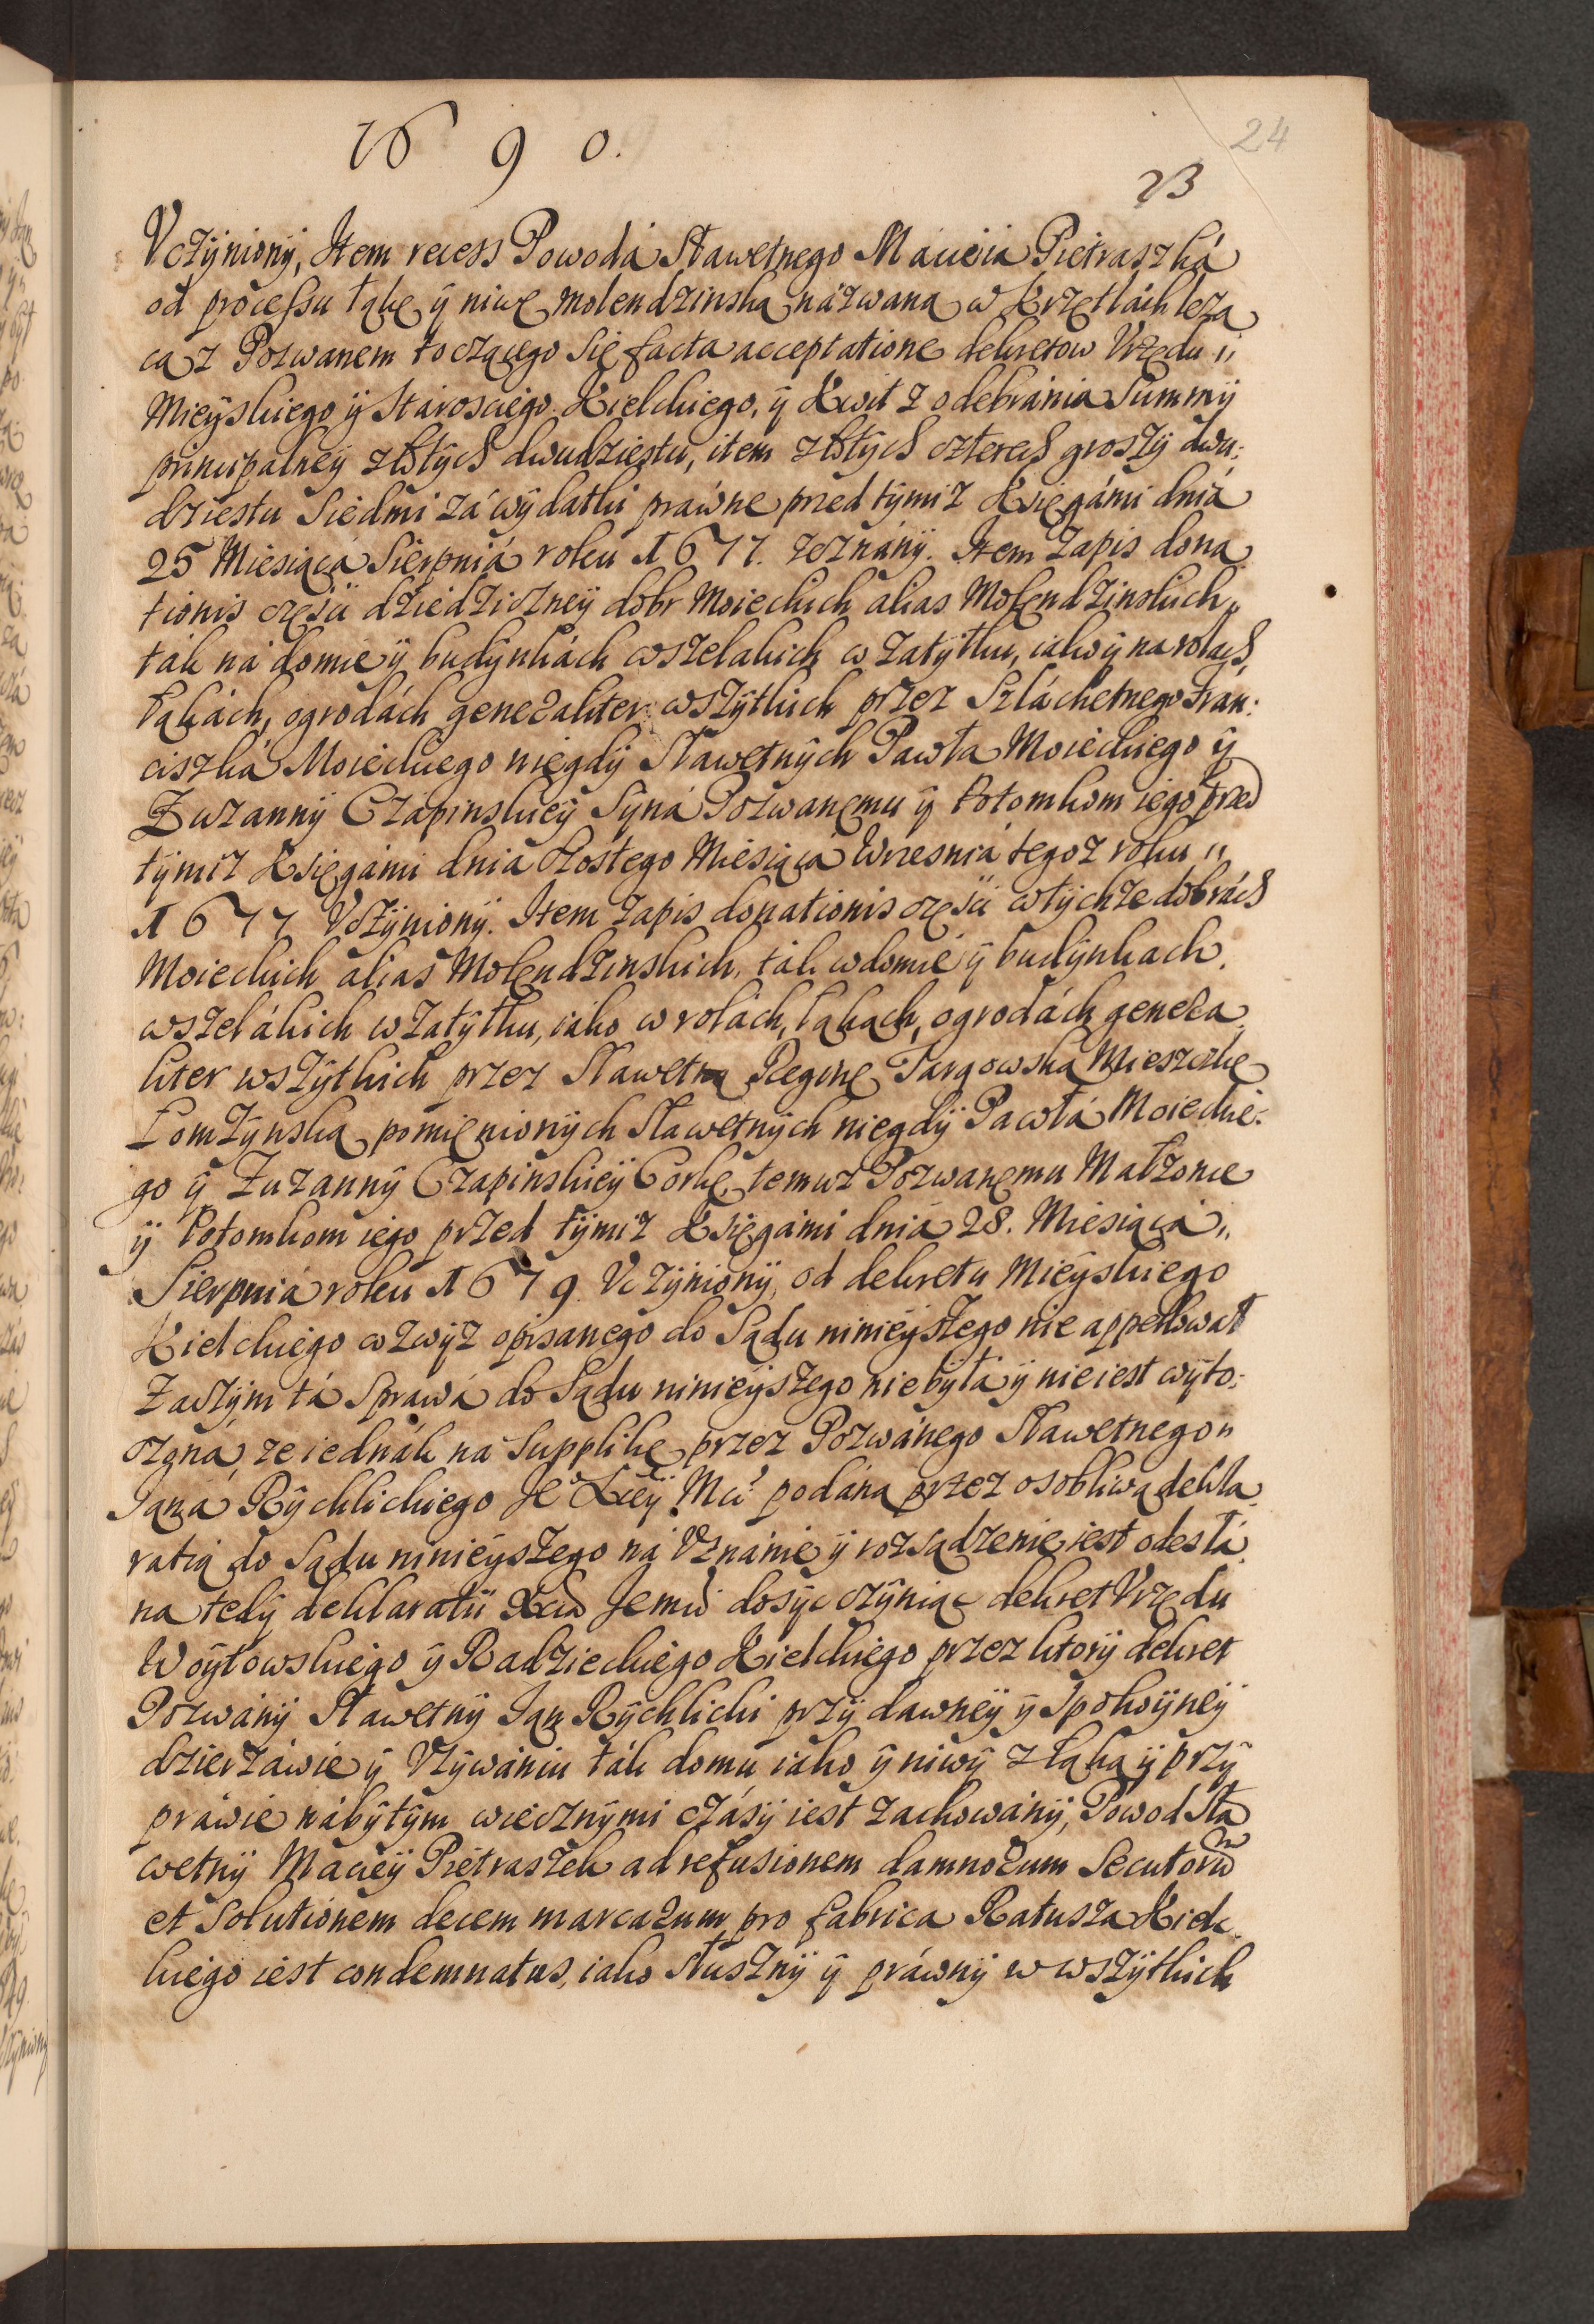 1690.
24
23
Vczÿnionÿ, Item recess Powodá Sławetnego Macieia Pietraszká
od processu łąkę ÿ niwę molendzinska názwana w Krzętlách leżą
cą z Pozwanem toczącego się facta acceptatione dekretow Vrzędu
Mieÿskiego ÿ Starosciego Kielckiego, ÿ Kwit z odebránia Summÿ
principalneÿ złotÿch dwudziestu, item złotÿch czterech groszÿ dwu:
dziestu siedmi zá wÿdatki práwne przed tÿmiż Księgámi dniá
25 Miesiącá Sierpniá roku 1677. zeznánÿ. Item zapis dona
tionis częsci dziedziczneÿ dobr Moieckich alias Molendzinskich
ták ná domie ÿ budÿnkách wszelakich w zatÿłku, iako ÿ na rolach,
łąkách, ogrodách generaliter wszÿtkich przez Szláchetnego Fran:
ciszká Moieckiego niegdÿ Sławetnÿch Pawła Moieckiego ÿ
Zuzannÿ Czápinskieÿ Sÿná Pozwanemu ÿ Potomkom iego przed
tÿmiż Księgámi dniá szostego Miesiącá Wrzesniá tegoż roku
1677 Vczÿnionÿ. Item zapis donationis częsci w tÿchże dobrách
Moieckich alias Molendzinskich, ták w domie ÿ budÿnkach
wszelákich w zatÿłku, iako w rolách, łąkach, ogrodách genera
liter wszÿtkich przez Sławetną Reginę Targowską Mieszczkę
Łomżÿnską pomięnionÿch Sławetnÿch niegdÿ Pawłá Moieckie:
go ÿ Zuzannÿ Czapinskieÿ Corkę, temuż Pozwanemu Małżonce
ÿ Potomkom iego przed tÿmiż Księgámi dniá 28. Miesiącá
Sierpniá roku 1679. Vczÿnionÿ, od dekretu Mieÿskiego
Kielckiego wzwÿż opisanego do Sądu ninieÿszego nie appellował
Zaczÿm tá Sprawá do Sądu ninieÿszego nie bÿłá ÿ nie iest wÿto:
czoná, że iednák na Supplikę przez Pozwánego Sławetnego
Janá Rÿchlickiego podána przez osobliwą dekla
ratią do Sądu ninieÿszego ná Vznánie ÿ rozsądzenie iest odesłá
na tedÿ deklaratÿi dosÿc czÿniąc dekret Vrzędu
Woÿtowskiego ÿ Radzieckiego Kielckiego przez ktorÿ dekret
Pozwánÿ Sławetnÿ Jan Rÿchlicki przÿ dawneÿ ÿ Spokoÿneÿ
dzierżáwie ÿ Vżÿwániu ták domu iako ÿ niwÿ z łąką ÿ przÿ
práwie nábÿtÿm wiecznÿmi czásÿ iest zachowánÿ, Powod Sła
wetnÿ Macieÿ Pietraszek ad refusionem damnorum Secutorũ
et Solutionem decem marcarum pro fabrica Ratusza Kielc
kiego iest condemnatus, iako słusznÿ ÿ práwnÿ w wszÿtkich